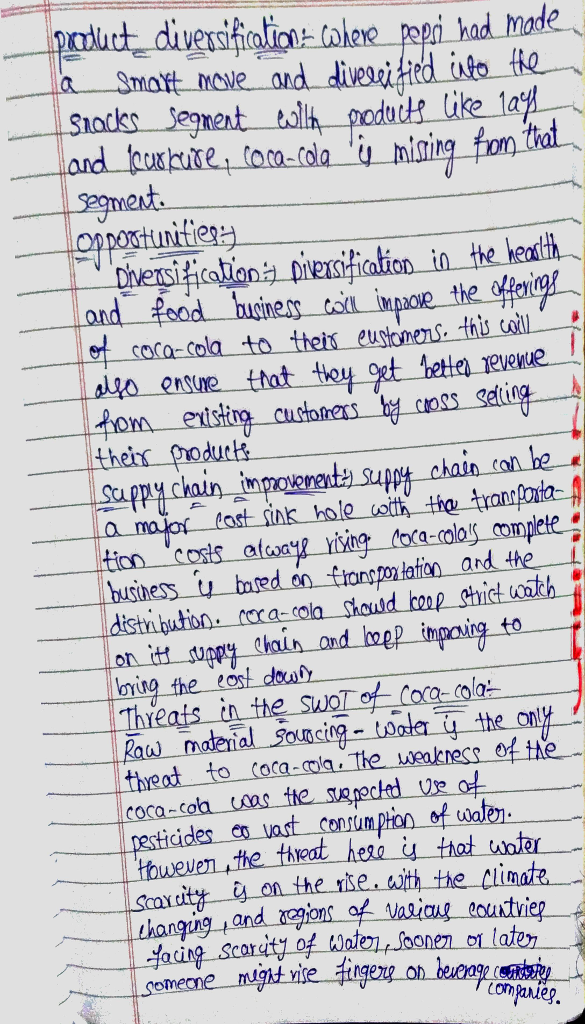 product diversification:- where pepsi had made
a smart move and diversified into the
snacks segment with products like lays
and kurkure, coca-cola is missing from that
segment.
opportunities:-
Diversification:- Diversification in the hearlth
and food business will improve the offerings
of coca-cola to their customers. this will
also ensure that they get better revenue
from existing customers by cross selling
their products.
suppy chain improvement:- suppy chain can be
a major cost sink hole with the transporta-
tion costs always rising. Coca-cola's complete
business is based on transportation and the
distribution. coca-cola should keep strict watch
on its suppy chain and keep improving to
bring the cost down
Threats in the SWOT of coca-cola:-
Raw material sourcing - water is the only
threat to coca-cola. The weakness of the
coca-cola was the suspected use of
pesticides or vast consumption of water.
However, the threat here is that water
scarcity is on the rise. with the climate
changing, and regions of various countries
facing scarcity of water, sooner or later
someone might rise fingers on beverage
companies.